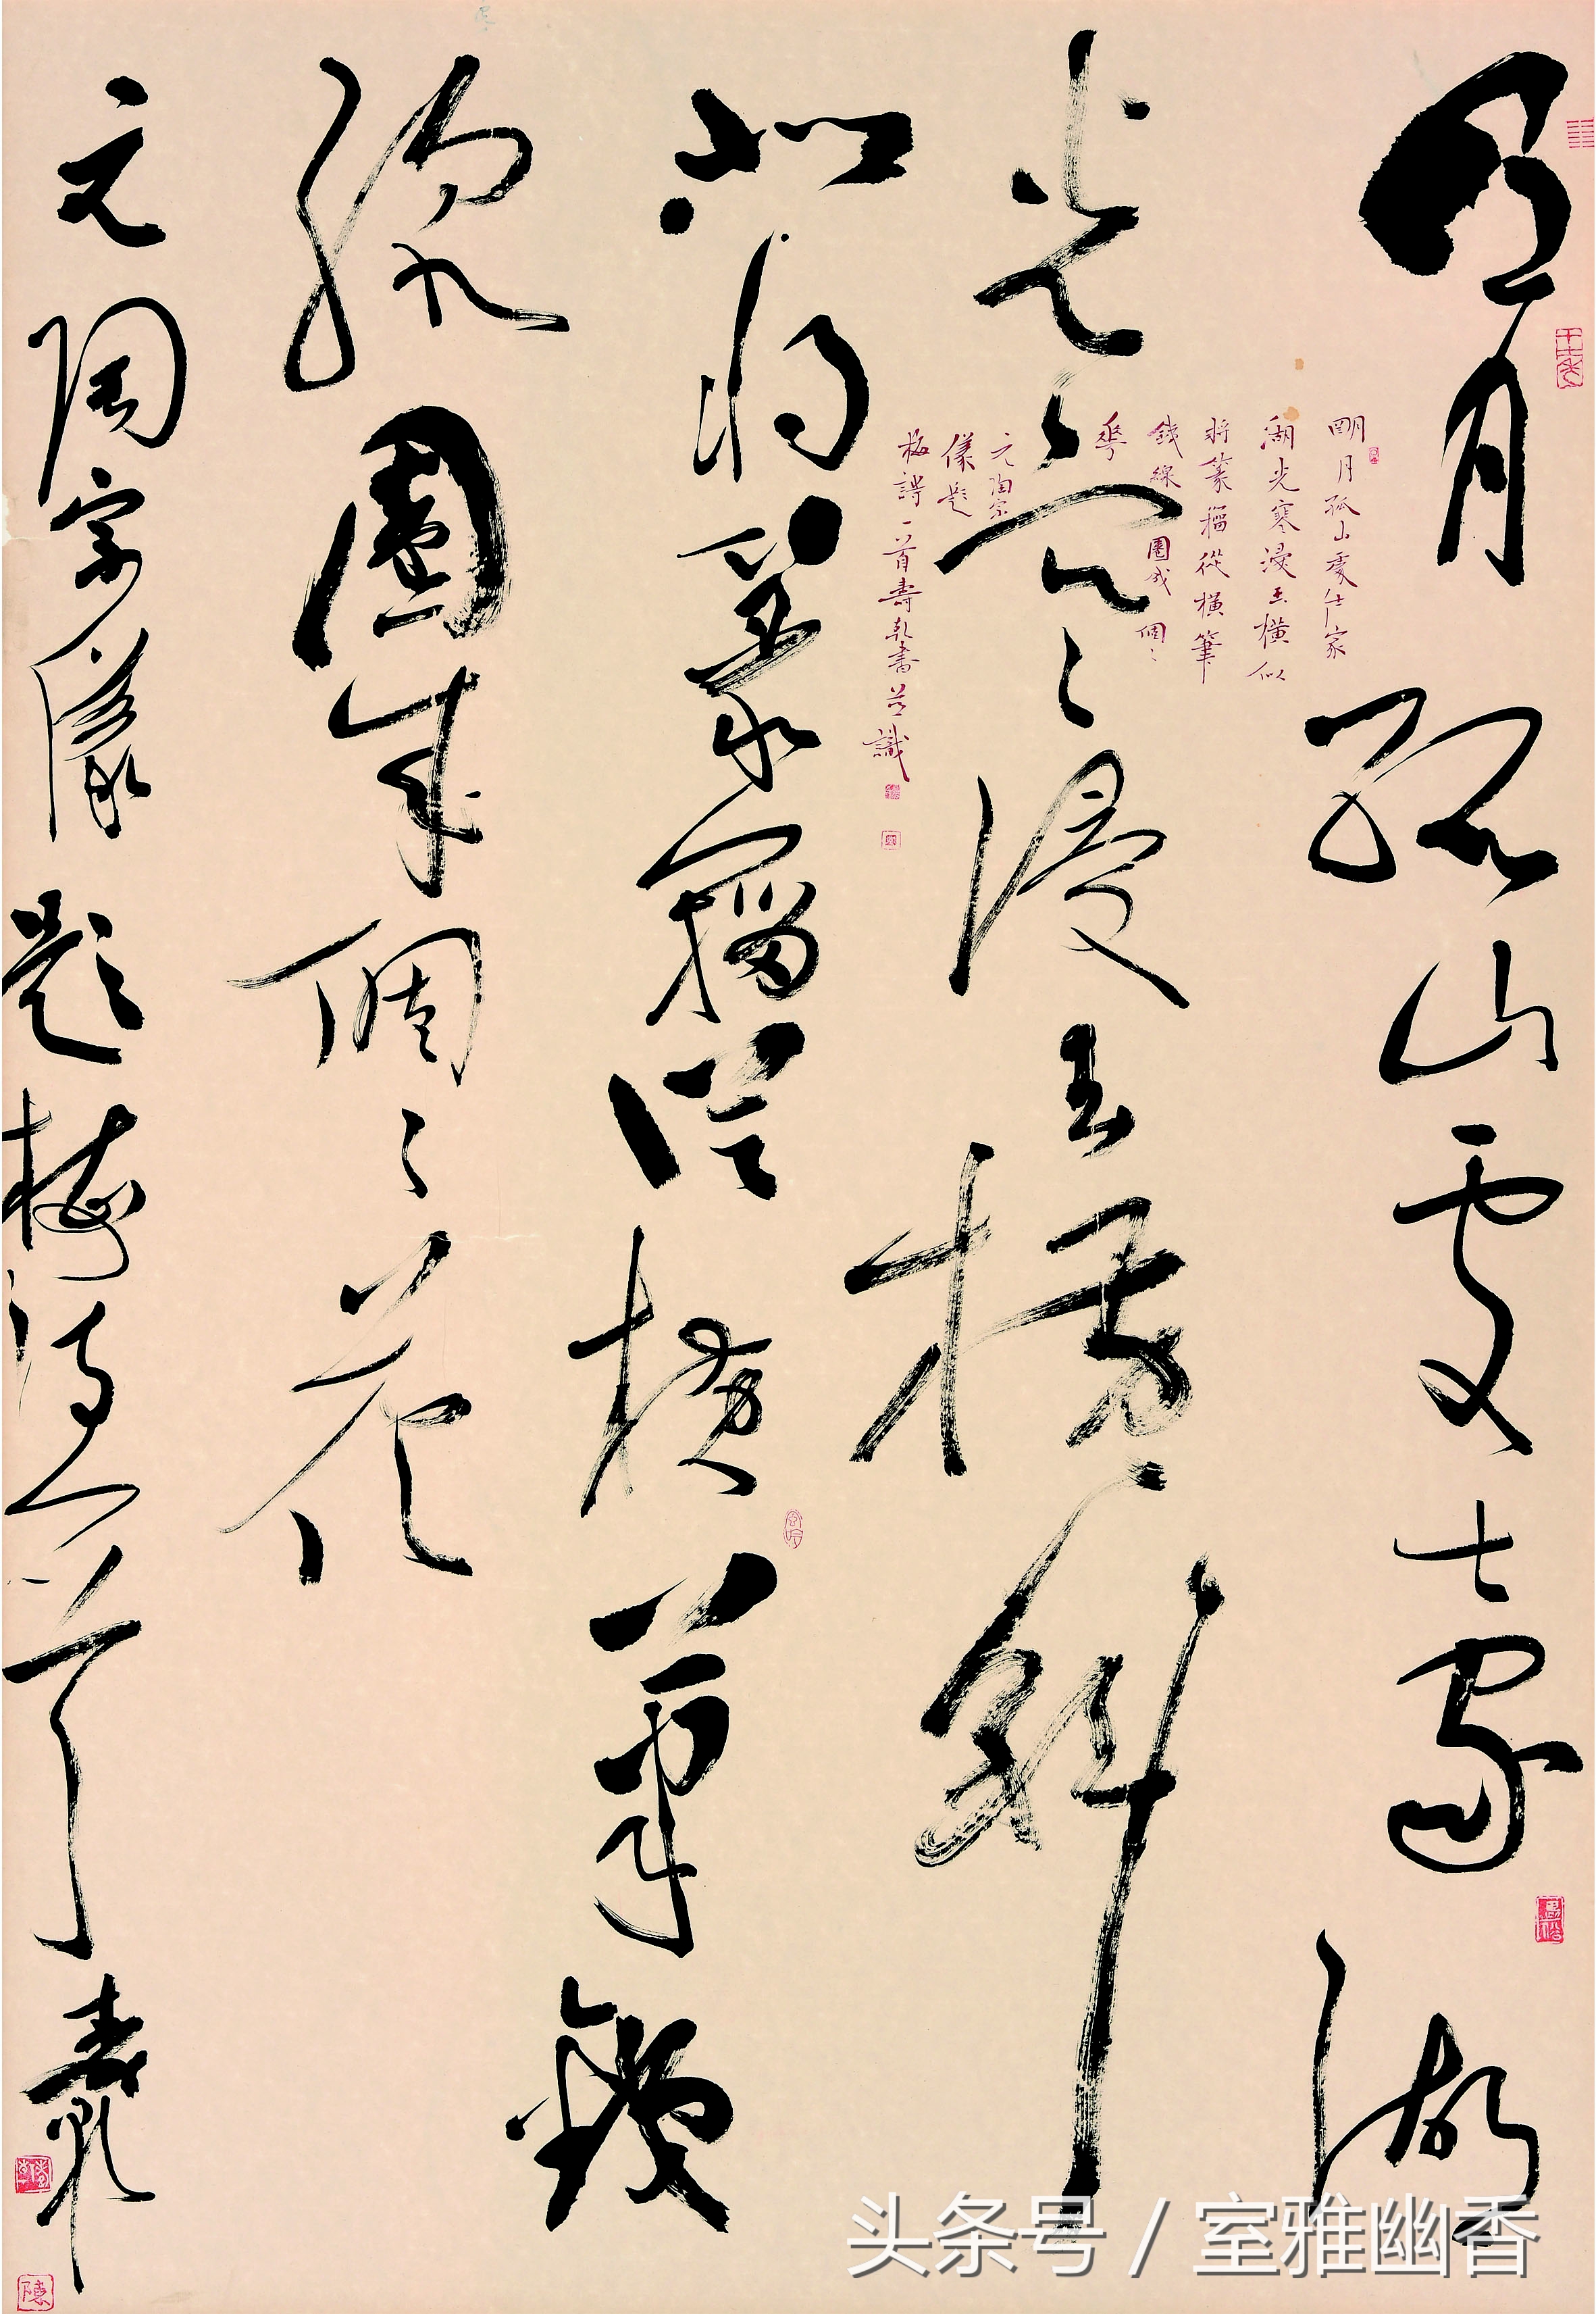 明月孤山處士家湖
光寒浸玉橫斜
似將篆籀從橫筆鐵
線圈成個〻花
元陶宗儀題梅詩一首壽乾
明月孤山處仕家
湖光寒浸玉橫似
將篆籀從橫筆
錢線圈成個〻
華
元陶宗
儀題
梅詩一首壽乾書並識
头条号 / 室雅幽香